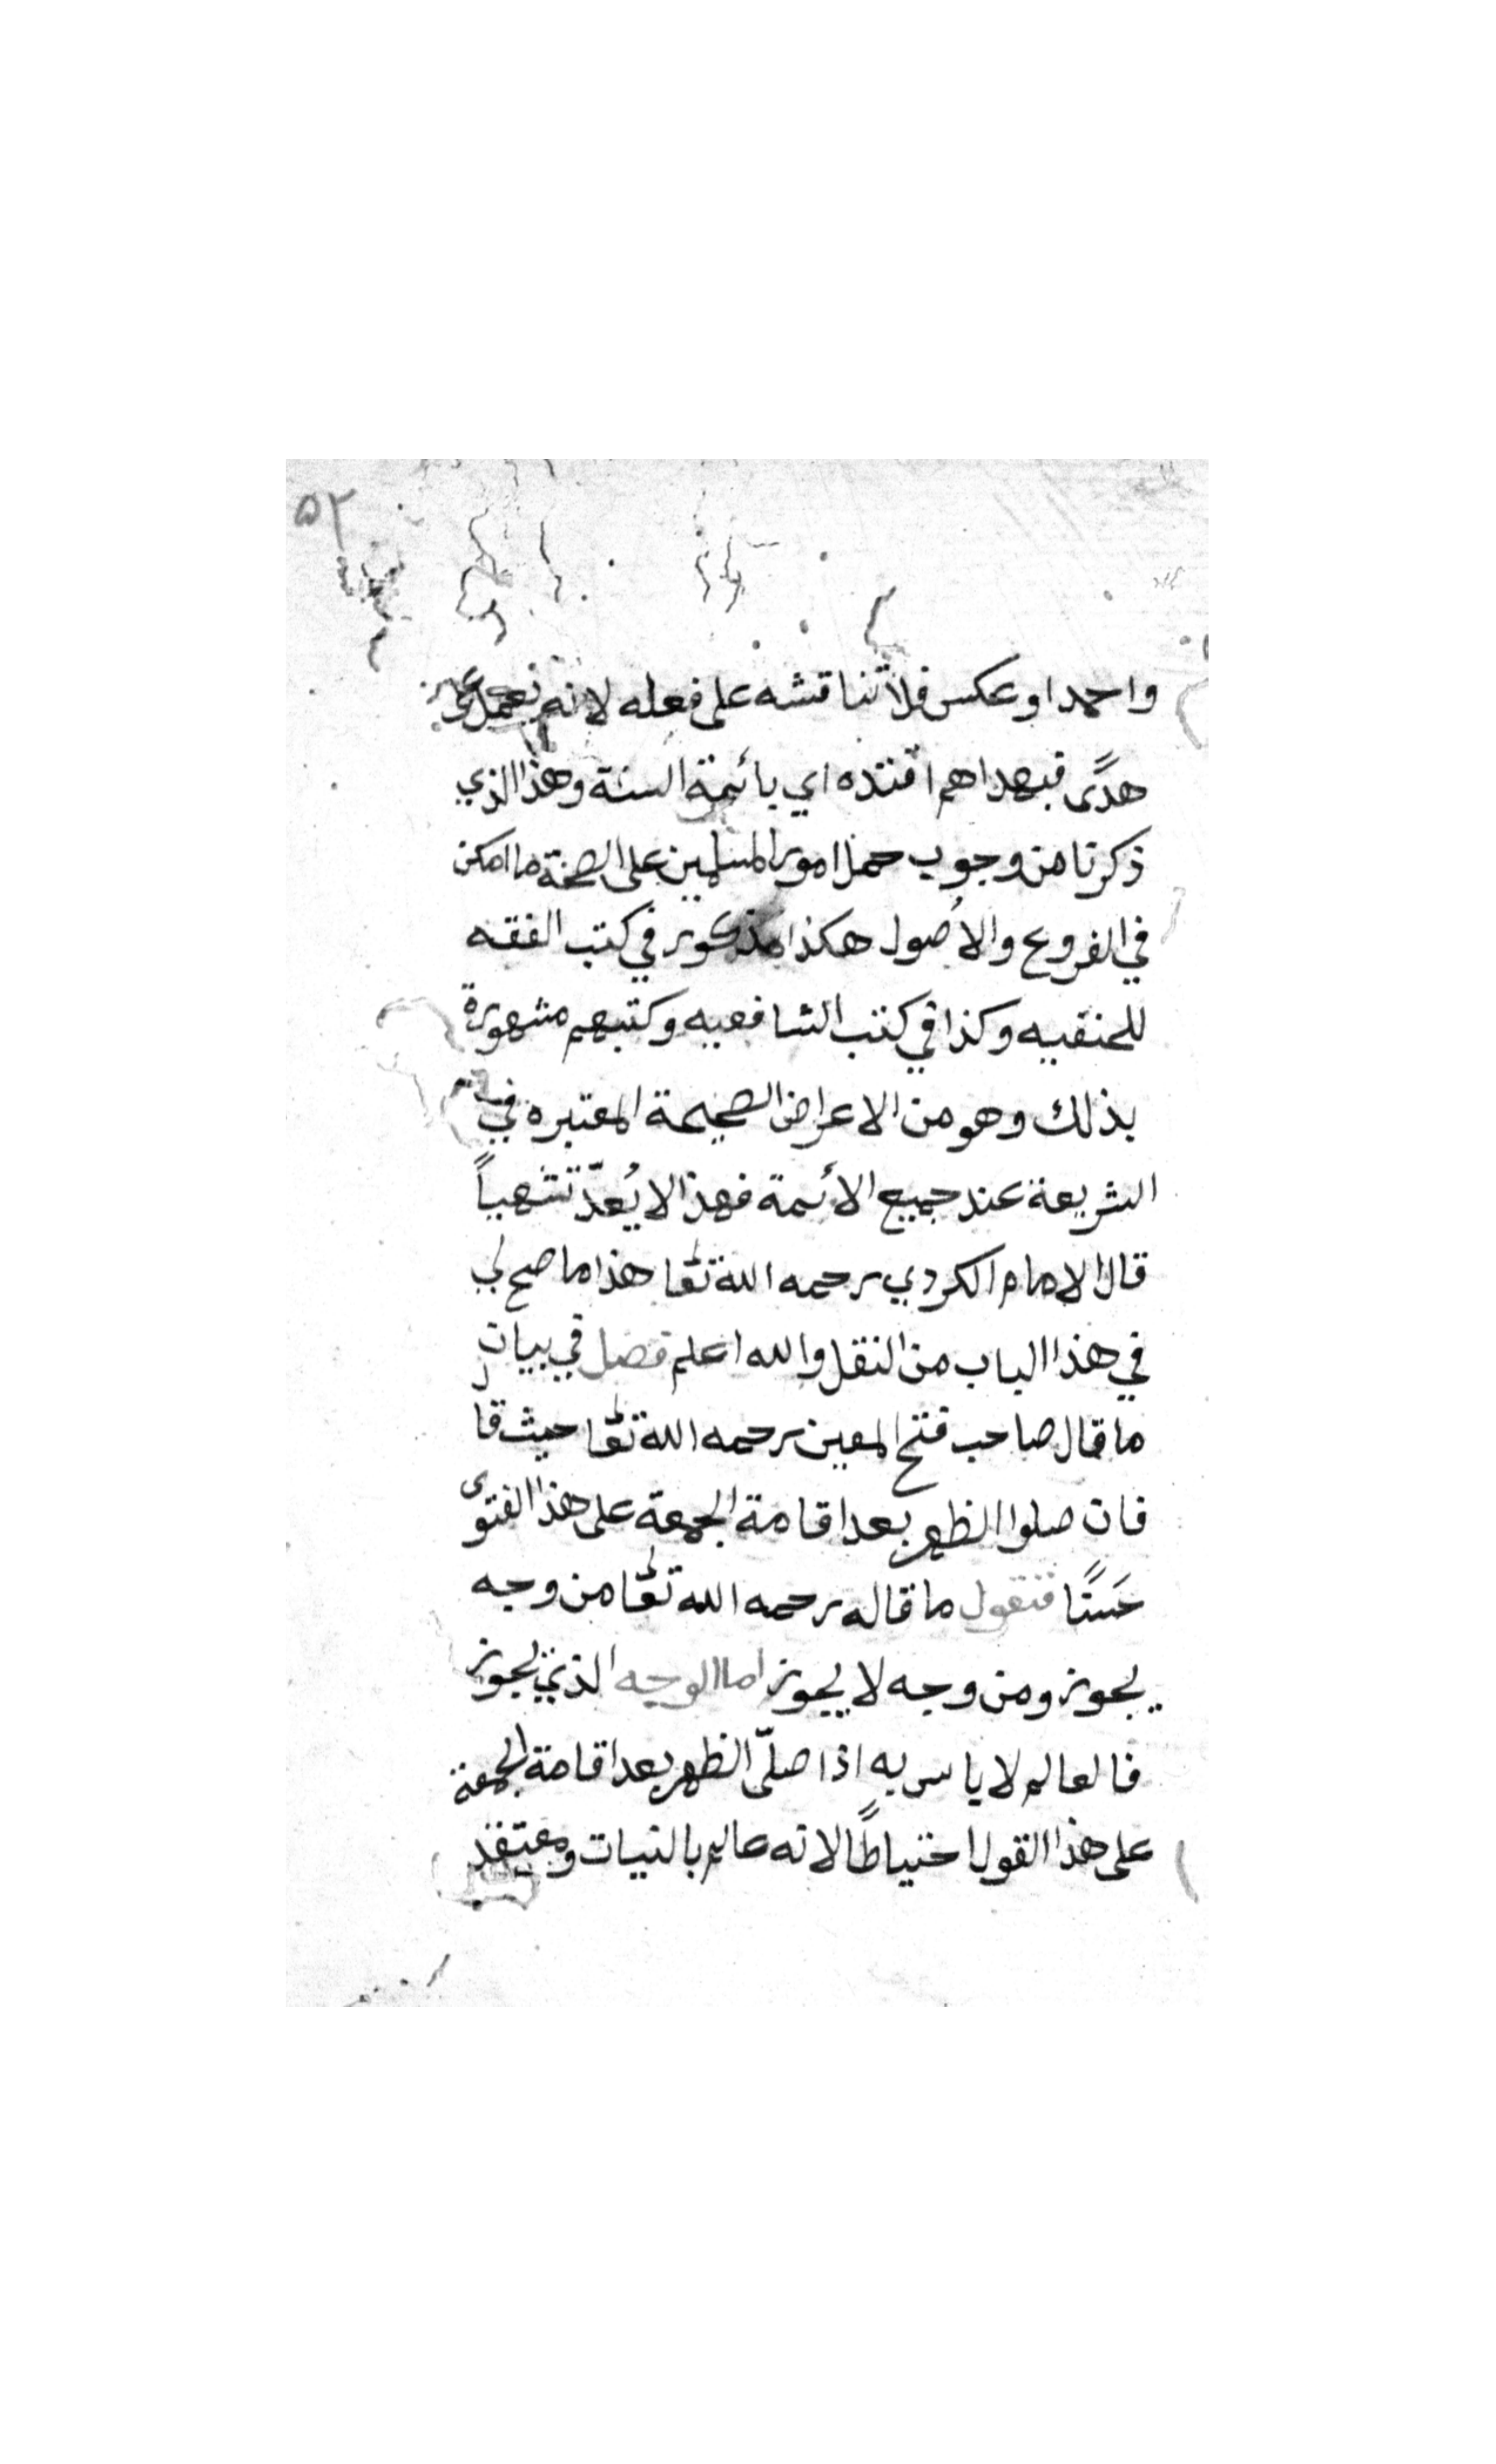 ٥٢
واحمد او عكس فلا تناقشه على فعله لانهم يعمل على
هدًى فبهداهم اقتده اي بائمة السنة وهذا الذي
ذكرنا من وجوب حمل امور المسلمين على الصحة ما امكن
في الفروع والاُصول هكذا مذكور في كتب الفقه
للحنفيه وكذا في كتب الشافعيه وكتبهم مشهورة
بذلك وهو من الاعراض الصحيحة المعتبره في
الشريعة عند جميع الأئمة فهذا لا يُعدّ تشهياً
قال الامام الكردي رحمه الله تعالى هذا ما صح لي
في هذا الباب من النقل والله اعلم فصل في بيان
ما قال صاحب فتح المعين رحمه الله تعالى حيث قال
فان صلوا الظهر بعد اقامة الجمعة على هذا الفتوى
حَسَنًا فنقول ما قاله رحمه الله تعالى من وجه
يجوز ومن وجه لا يجوز اما الوجه الذي يجوز
فالعالم لا ياس به اذا صلّى الظهر بعد اقامة الجمعة
على هذا القول احتياطًا لانه عالم بالنيات ومعتقد